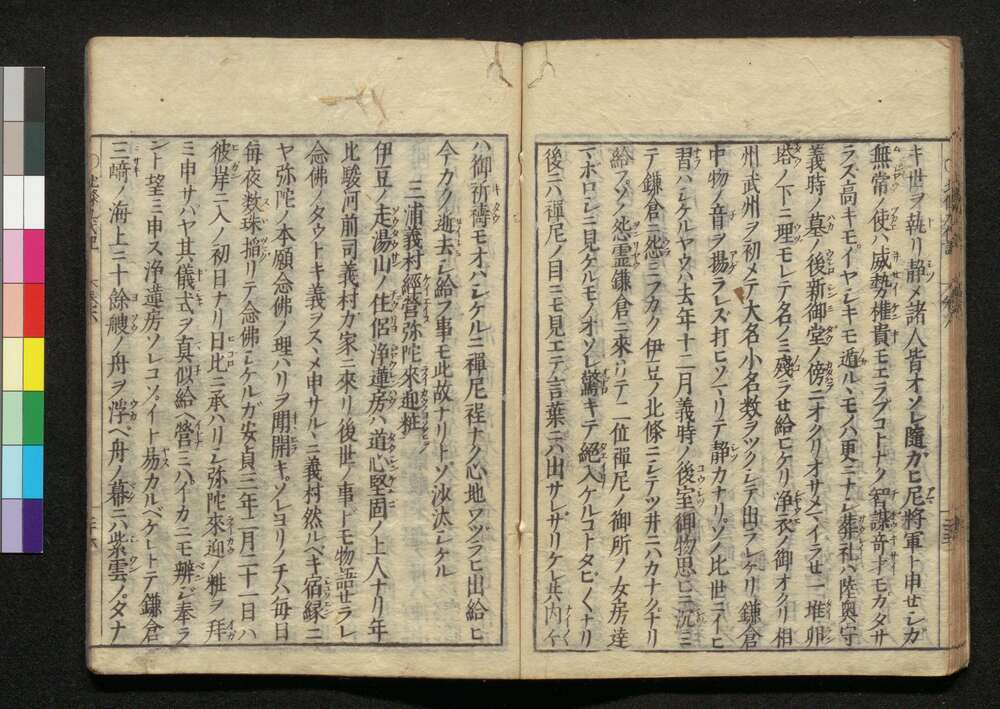 キ世ヲ執リ静メ諸人皆オソレ隨ガヒ尼將軍ト申セシガ
無常ノ使ハ威勢權貴モエラブコトナク智謀奇才モカタサ
ラズ高キモイヤシキモ遁ルヽモノハ更ニナシ葬礼ハ陸奥守
義時ノ墓ノ後新御堂ノ傍ニオクリオサメマイラセ一堆卵
塔ノ下ニ埋モレテ名ノミ殘ラセ給ヒケリ浄衣ノ御オクリ相
州武州ヲ初メテ大名小名数ヲツクシテ出ラレケリ鎌倉
中物ノ音ヲ揚ラレズ打ヒソマリテ静カナリソノ比世ニイヒ
習ハシケルヤウハ去年十二月義時ノ後室御物思ヒニ沉ミ
テ鎌倉ニ恐ミフカク伊豆ノ北條ニシテツ井ニハカナクナリ
給フソノ怨霊鎌倉ニ來リテ二位禪尼ノ御所ノ女房達
マボロシニ見ケルモノオソレ驚キテ絕入ケルコトタビ〱ナリ
後ニハ禪尼ノ目ニモ見エテ言葉ニハ出サレザリケレ共内々
ハ御祈禱モオハシケルニ禪尼程ナク心地ワヅラヒ出給ヒ
今カク逝去シ給フ事モ此故ナリトゾ沙汰シケル
三浦義村經營弥陀來迎粧
伊豆ノ走湯山ノ住侶浄蓮房ハ道心堅固ノ上人ナリ年
比駿河前司義村ガ家ニ來リ後世ノ事ドモ物語セラレ
念佛ノタウトキ義ヲスヽメ申サルヽニ義村然ルベキ宿縁ニ
ヤ弥陀ノ本願念佛ノ理ハリヲ聞開キソレヨリノチハ毎日
毎夜数珠搯リテ念佛シケルガ安貞三年二月二十一日ハ
彼岸ニ入ノ初日ナリ日比ニ承ハリシ弥陀來迎ノ粧ヲ拜
ミ申サバヤ其儀式ヲ真似給ヘ營ミハイカニモ辨ジ奉ラ
ント望ミ申ス浄蓮房ソレコソイト易カルベケレトテ鎌倉
三﨑ノ海上ニ十餘艘ノ舟ヲ浮ベ舟ノ幕ニハ紫雲ノタナ